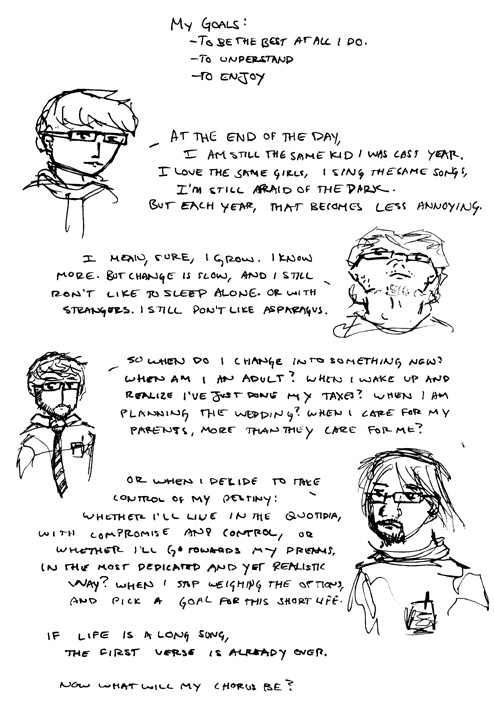 MY GOALS:
-TO BE THE BEST AT ALL I DO.
-TO UNDERSTAND
-TO ENJOY
AT THE END OF THE DAY,
I AM STILL THE SAME KID I WAS LAST YEAR.
I LOVE THE SAME GIRLS, I SING THE SAME SONGS,
I'M STILL AFRAID OF THE DARK.
BUT EACH YEAR, THAT BECOMES LESS ANNOYING.
I MEAN, SURE, I GROW. I KNOW
MORE. BUT CHANGE IS SLOW, AND I STILL
DON'T LIKE TO SLEEP ALONE. OR WITH
STRANGERS. I STILL DON'T LIKE ASPARAGUS.
SO WHEN DO I CHANGE INTO SOMETHING NEW?
WHEN AM I AN ADULT? WHEN I WAKE UP AND
REALIZE I'VE JUST DONE MY TAXES? WHEN I AM
PLANNING THE WEDDING? WHEN I CARE FOR MY
PARENTS, MORE THAN THEY CARE FOR ME?
OR WHEN I DECIDE TO TAKE
CONTROL OF MY DESTINY:
WHETHER I'LL LIVE IN THE QUOTIDIA,
WITH COMPROMISE AND CONTROL, OR
WHETHER I'LL GO TOWARDS MY DREAMS,
IN THE MOST DEDICATED AND YET REALISTIC
WAY? WHEN I STOP WEIGHING THE OPTIONS,
AND PICK A GOAL FOR THIS SHORT LIFE.
IF LIFE IS A LONG SONG,
THE FIRST VERSE IS ALREADY OVER.
NOW WHAT WILL MY CHORUS BE?